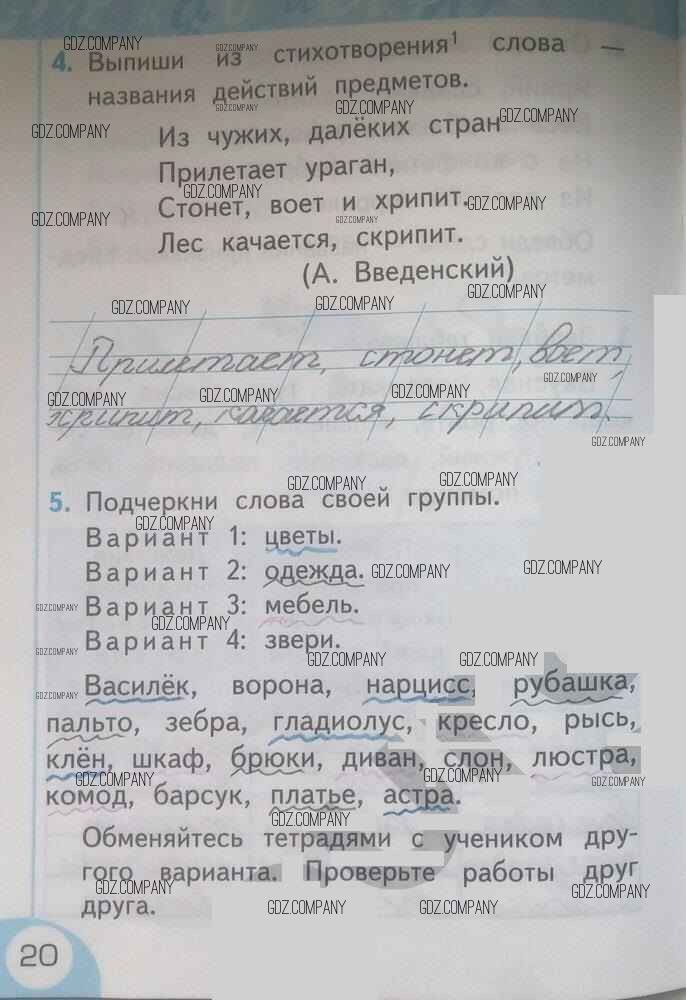 4. Выпиши из стихотворения¹ слова —
названия действий предметов.
Из чужих, далёких стран
Прилетает ураган,
Стонет, воет и хрипит.
Лес качается, скрипит.
(А. Введенский)
Прилетает, стонет, воет,
хрипит, качается, скрипит.
5. Подчеркни слова своей группы.
Вариант 1: цветы.
Вариант 2: одежда.
Вариант 3: мебель.
Вариант 4: звери.
Василёк, ворона, нарцисс, рубашка,
пальто, зебра, гладиолус, кресло, рысь,
клён, шкаф, брюки, диван, слон, люстра,
комод, барсук, платье, астра.
Обменяйтесь тетрадями с учеником дру-
гого варианта. Проверьте работы друг
друга.
20
GDZ.COMPANY